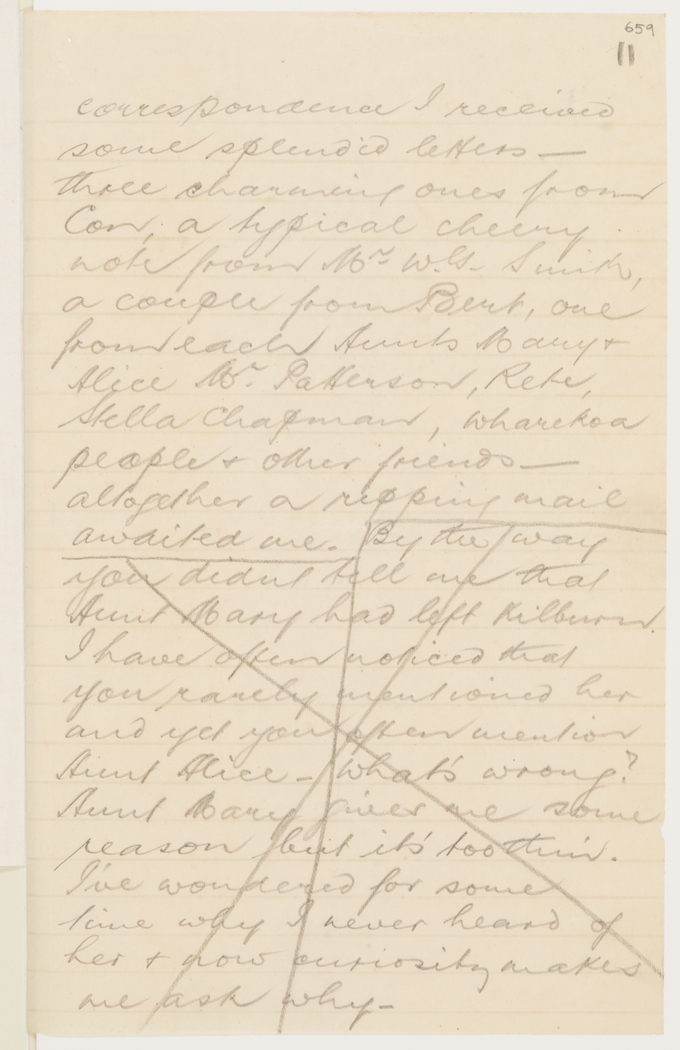 659
11
correspondence I received
some splendid letters —
three charming ones from
Con, a typical cheery
note from Mr W.G. Smith,
a couple from Bert, one
from each Aunts Mary +
Alice Mr. Patterson, Rete,
Stella Chapman, Wharekoa
people + other friends —
altogether a ripping mail
awaited me. By the way
you didnt tell me that
Aunt Mary had left Kilburn.
I have often noticed that
you rarely mentioned her
and yet you often mention
Aunt Alice – What's wrong?
Aunt Mary gives me some
reason but it's too thin.
I've wondered for some
time why I never heard of
her + now curiosity makes
me ask why –